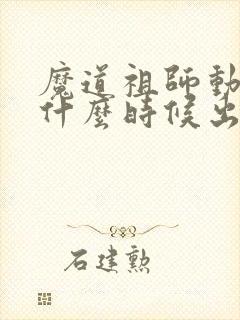 魔道祖師動
什麼時候出
石建勲